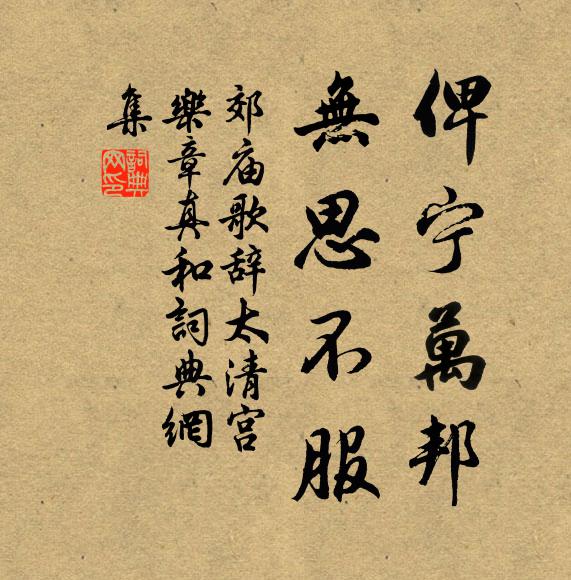 俾宁萬邦
無思不服
郊庙歌辞太清宫
樂章真和詞典網
集
詞典网印